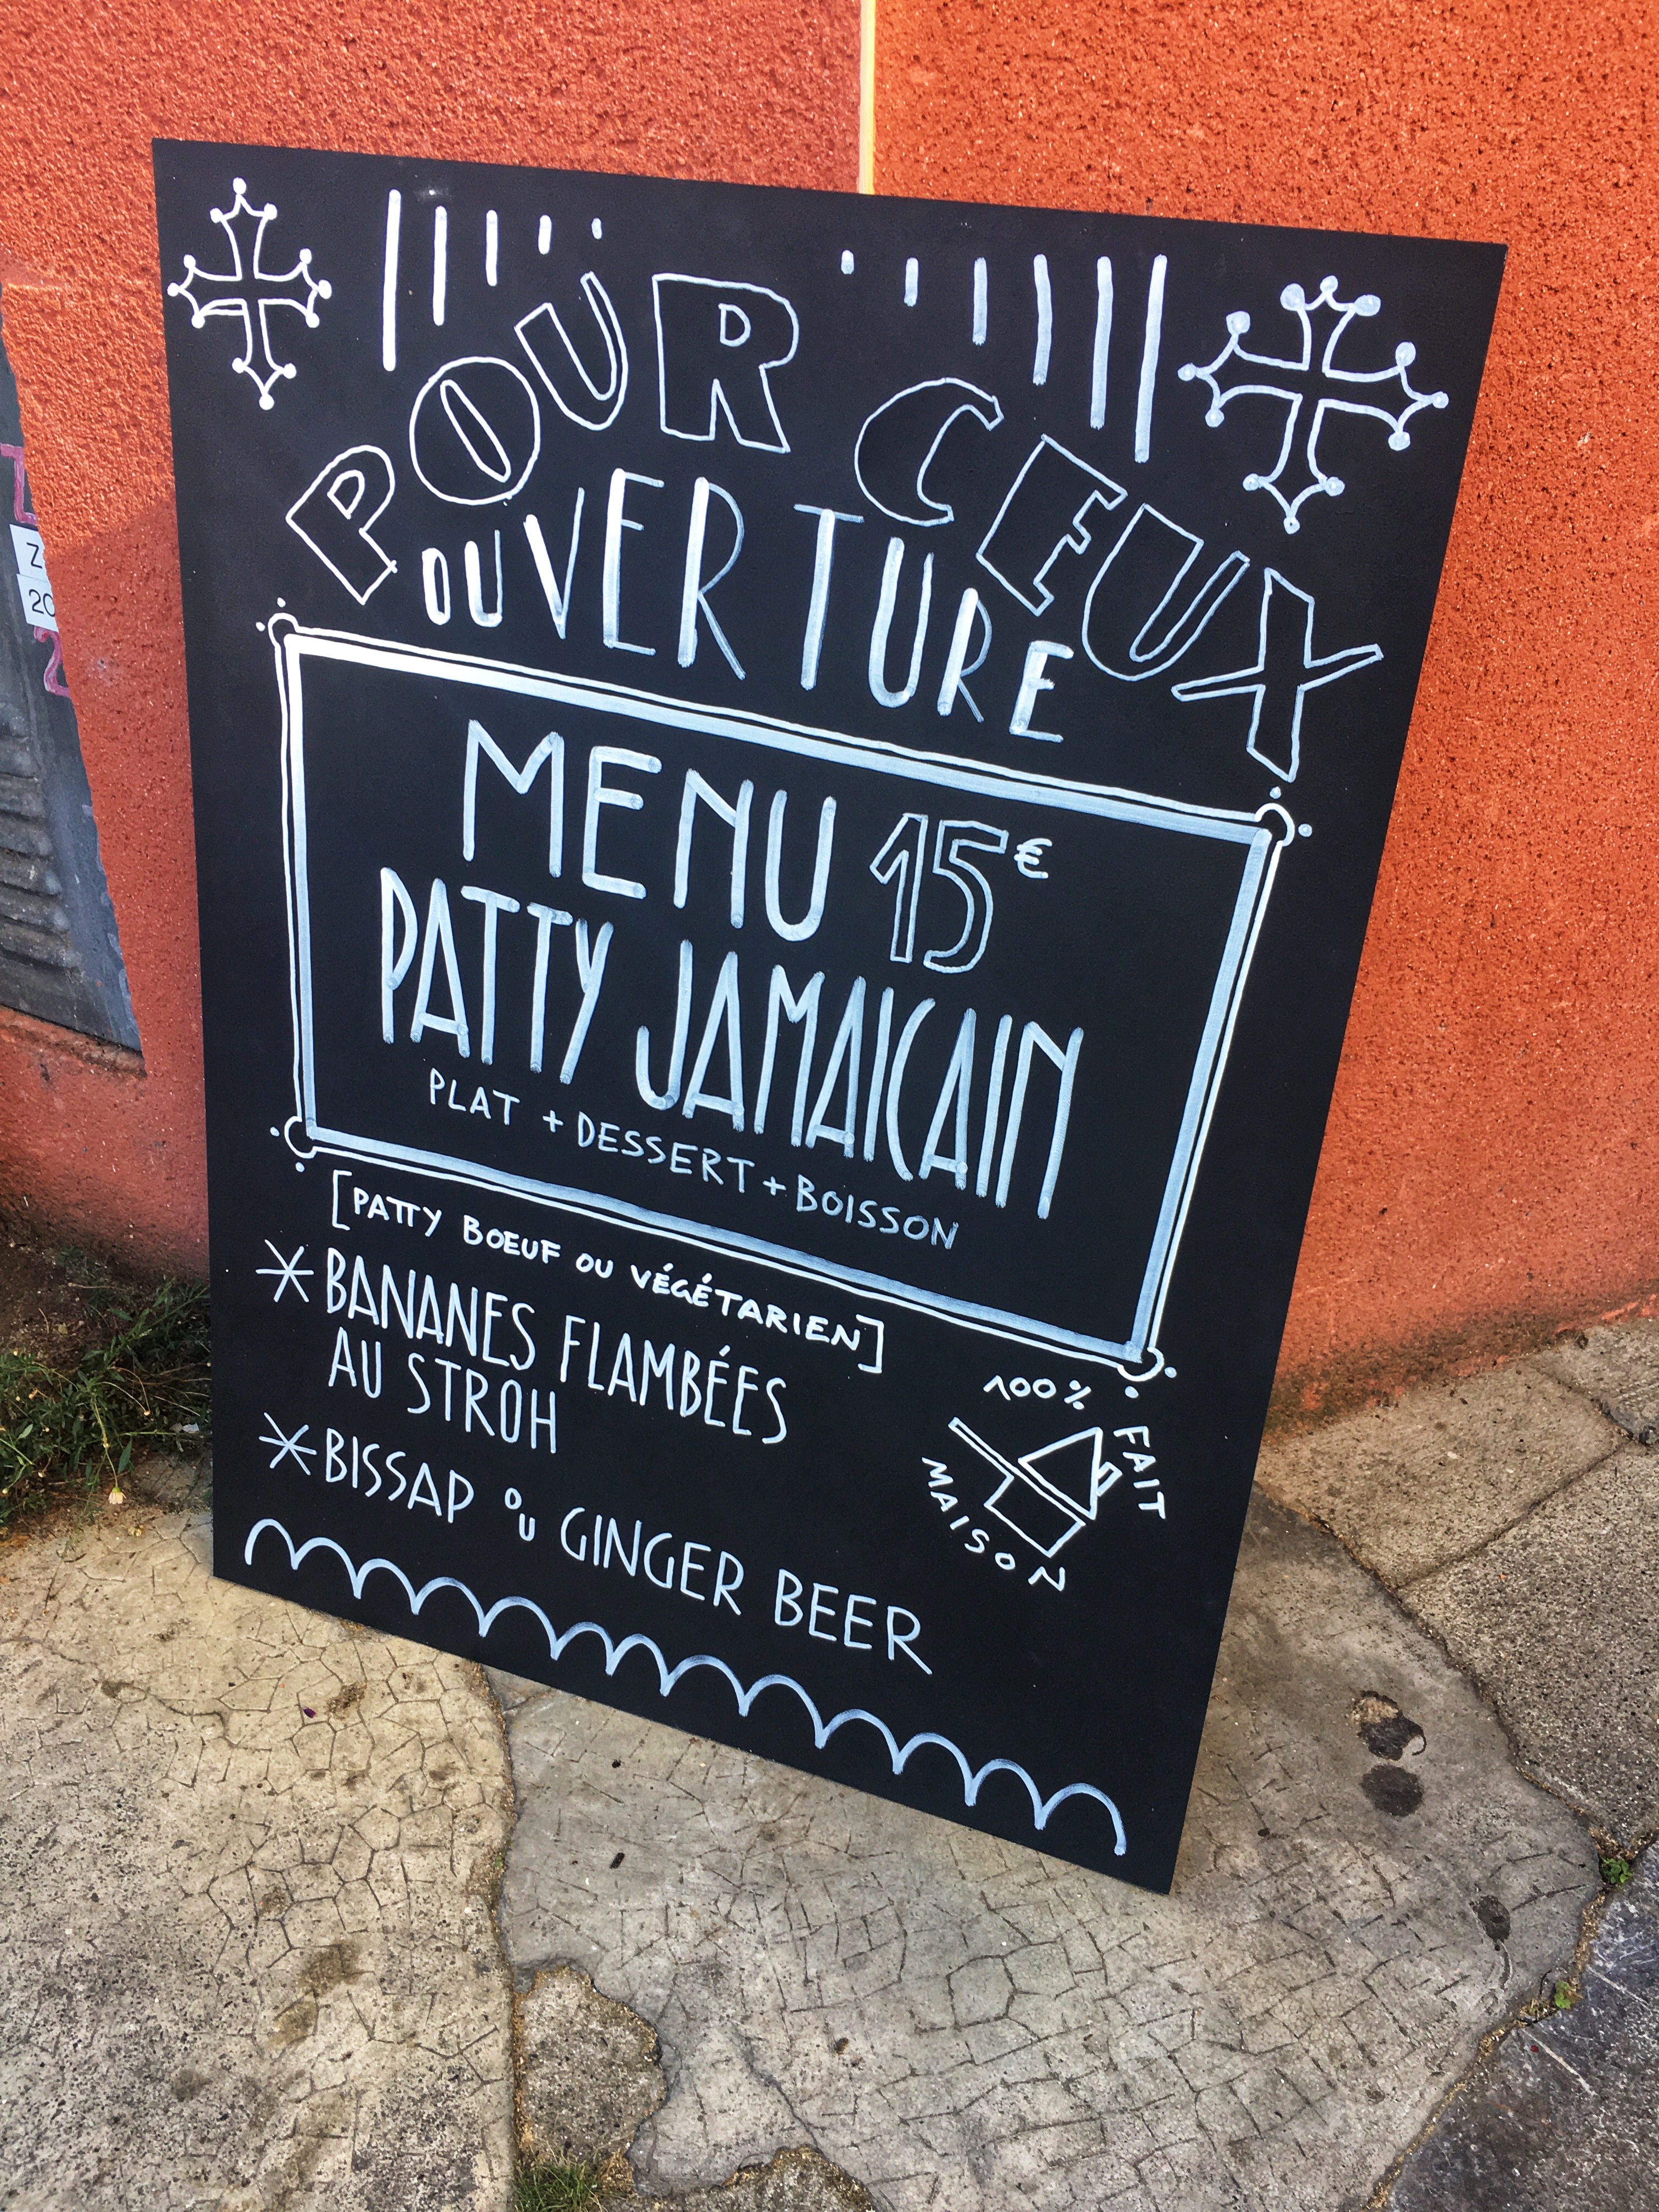 POUR CEUX
OUVERTURE
MENU 15€
PATTY JAMAICAIN
PLAT + DESSERT + BOISSON
[PATTY BOEUF OU VÉGÉTARIEN]
* BANANES FLAMBÉES
AU STROH
* BISSAP OU GINGER BEER
100% FAIT
MAISON
Z
20
2